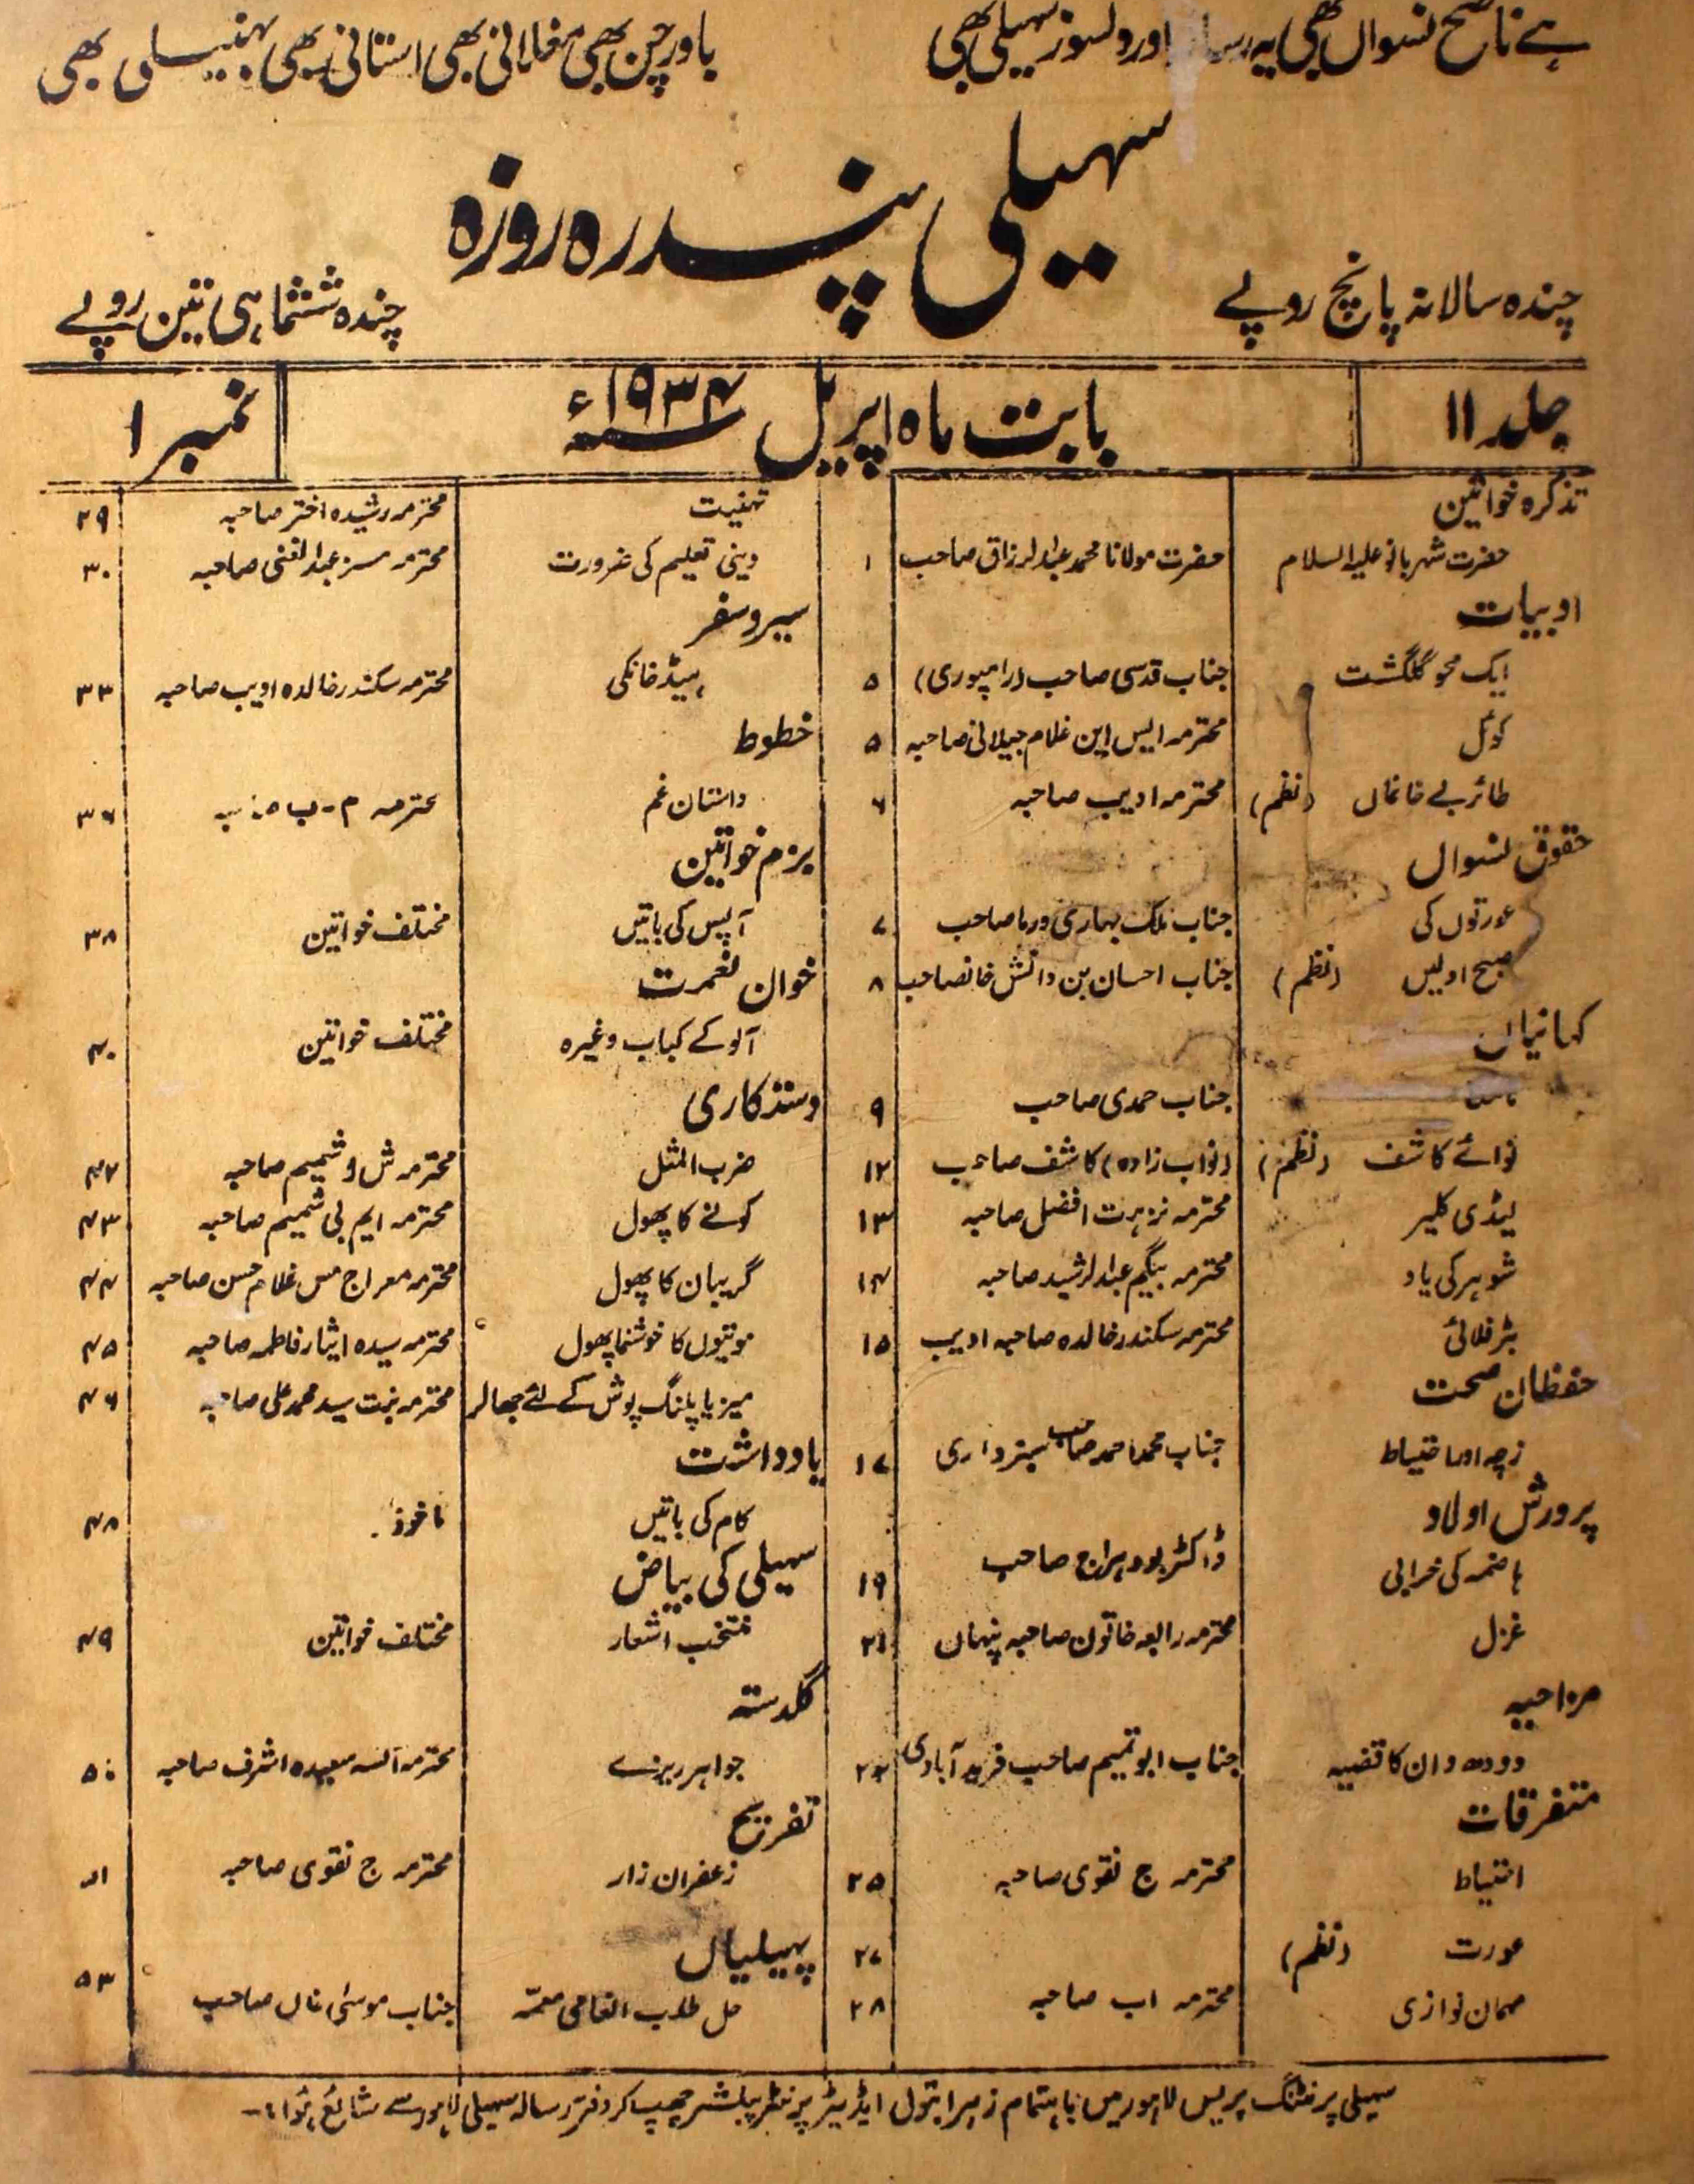 ہے ناصح نسواں بھی یہ رسالہ اور دلسوز سہیلی بھی
باورچن بھی مغلانی بھی استانی بھی بہنیلی بھی
سہیلی پندرہ روزہ
چندہ سالانہ پانچ روپے
چندہ ششماہی تین روپے
جلد ۱۱
بابت ماہ اپریل ۱۹۳۴ء
نمبر ۱
تذکرہ خواتین
حضرت شہربانو علیہ السلام حضرت مولانا محمد عبدالرزاق صاحب ۱
ادبیات
ایک محو گلگشت جناب قدسی صاحب (رامپوری) ۵
کوئل محترمہ ایس این غلام جیلانی صاحبہ ۵
طائر بے خانماں (نظم) محترمہ ادیب صاحبہ ۶
حقوق نسواں
عورتوں کی جناب ملک بہاری ورما صاحب ۷
صبح اولیں (نظم) جناب احسان بن دانش خانصاحب ۸
کہانیاں
جناب حمدی صاحب ۹
نوائے کاشف (نظم) (نواب زادہ) کاشف صاحب ۱۲
لیڈی کلیر محترمہ نزہت افضل صاحبہ ۱۳
شوہر کی یاد محترمہ بیگم عبدالرشید صاحبہ ۱۴
محترمہ سکندر خالدہ صاحبہ ادیب ۱۵
حفظان صحت
زچہ اور احتیاط جناب محمد احمد صاحب سبزواری ۱۷
پرورش اولاد
ہاضمہ کی خرابی ڈاکٹر بودہراج صاحب ۱۹
غزل محترمہ رابعہ خاتون صاحبہ پنہاں ۲۱
مزاحیہ
دودھ دان کا قضیہ جناب ابو تمیم صاحب فرید آبادی ۲۲
متفرقات
احتیاط محترمہ ج نقوی صاحبہ ۲۵
عورت (نظم) ۲۷
مہمان نوازی محترمہ اب صاحبہ ۲۸
تہنیت محترمہ رشیدہ اختر صاحبہ ۲۹
دینی تعلیم کی ضرورت محترمہ مسز عبدالغنی صاحبہ ۳۰
سیر و سفر
ہیڈ خانکی محترمہ سکندر خالدہ ادیب صاحبہ ۳۳
خطوط
داستان غم محترمہ م-ب صاحبہ ۳۶
بزم خواتین
آپس کی باتیں مختلف خواتین ۳۸
خوان نعمت
آلو کے کباب وغیرہ مختلف خواتین ۴۰
دستکاری
ضرب المثل محترمہ ش و شمیم صاحبہ ۴۲
کونے کا پھول محترمہ ایم بی شمیم صاحبہ ۴۳
گریبان کا پھول محترمہ معراج مس غلام حسن صاحبہ ۴۴
موتیوں کا خوشنما پھول محترمہ سیدہ ایثار فاطمہ صاحبہ ۴۵
میز یا پلنگ پوش کے لئے جھالر محترمہ بنت سید محمد علی صاحبہ ۴۶
یادداشت
کام کی باتیں ماخوذ ۴۸
سہیلی کی بیاض
منتخب اشعار مختلف خواتین ۴۹
گلدستہ
جواہر ریزے محترمہ آنسہ سعیدہ اشرف صاحبہ ۵۰
تفریح
زعفران زار محترمہ ج نقوی صاحبہ ۵۱
پہیلیاں
حل طلب انعامی معمّہ جناب موسیٰ خاں صاحب ۵۳
سہیلی پرنٹنگ پریس لاہور میں باہتمام زہرا بتول ایڈیٹر پرنٹر پبلشر چھپ کر دفتر رسالہ سہیلی لاہور سے شائع ہوا۔